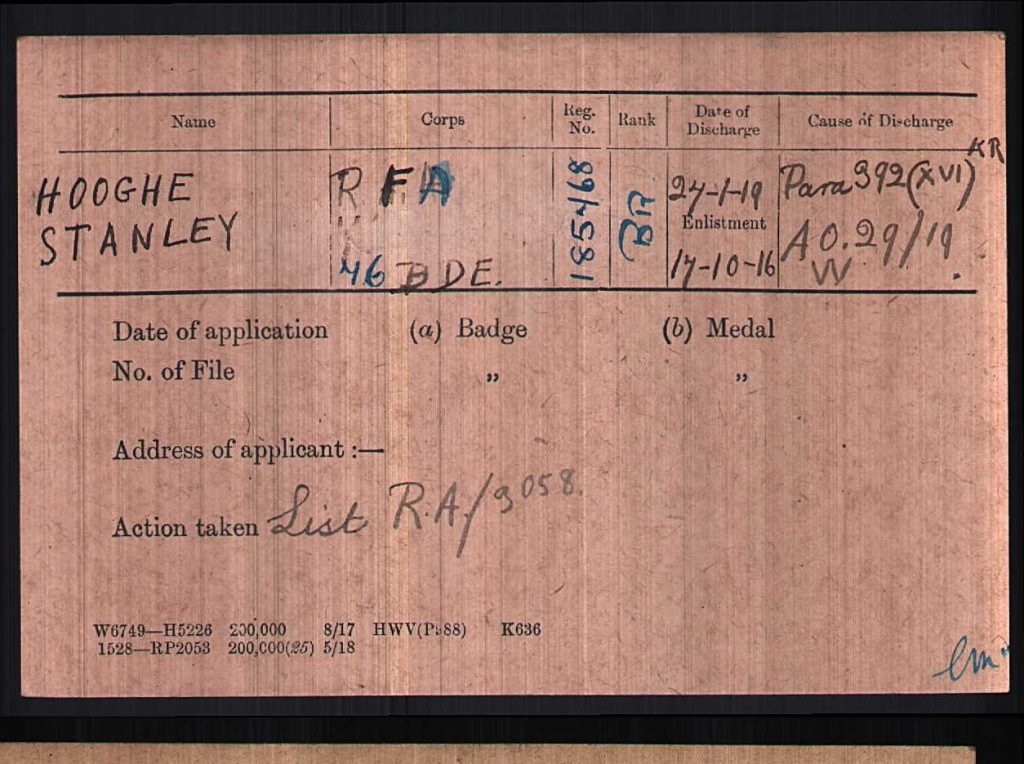 Name Corps Reg. No. Rank Date of Discharge Cause of Discharge
HOOGHE STANLEY
R F A
46 BDE.
185468
BR
27-1-19
Enlistment
17-10-16
Para 392 (XVI) KR
A O. 29/19
W
Date of application (a) Badge (b) Medal
No. of File " "
Address of applicant :—
Action taken List R.A./3058.
W6749—H5226 200,000 8/17 HWV(P588) K636
1528—RP2053 200,000(25) 5/18